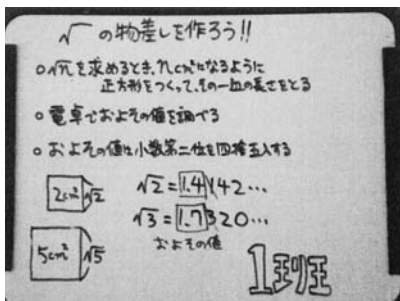 √の物差しを作ろう!!
○√nを求めるとき、ncm²になるように
正方形をつくって、その一辺の長さをとる
○電卓でおよその値を調べる
○およその値は小数第二位を四捨五入する
2cm² √2
√2=1.4142…
√3=1.7320…
およその値
5cm² √5
1班